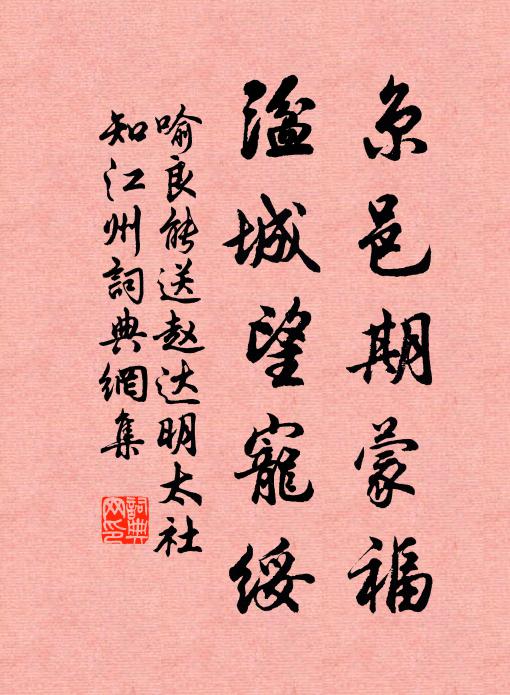 京邑期蒙福
湓城望寵綏
喻良能送赵达明太社
知江州詞典網集
詞典網印